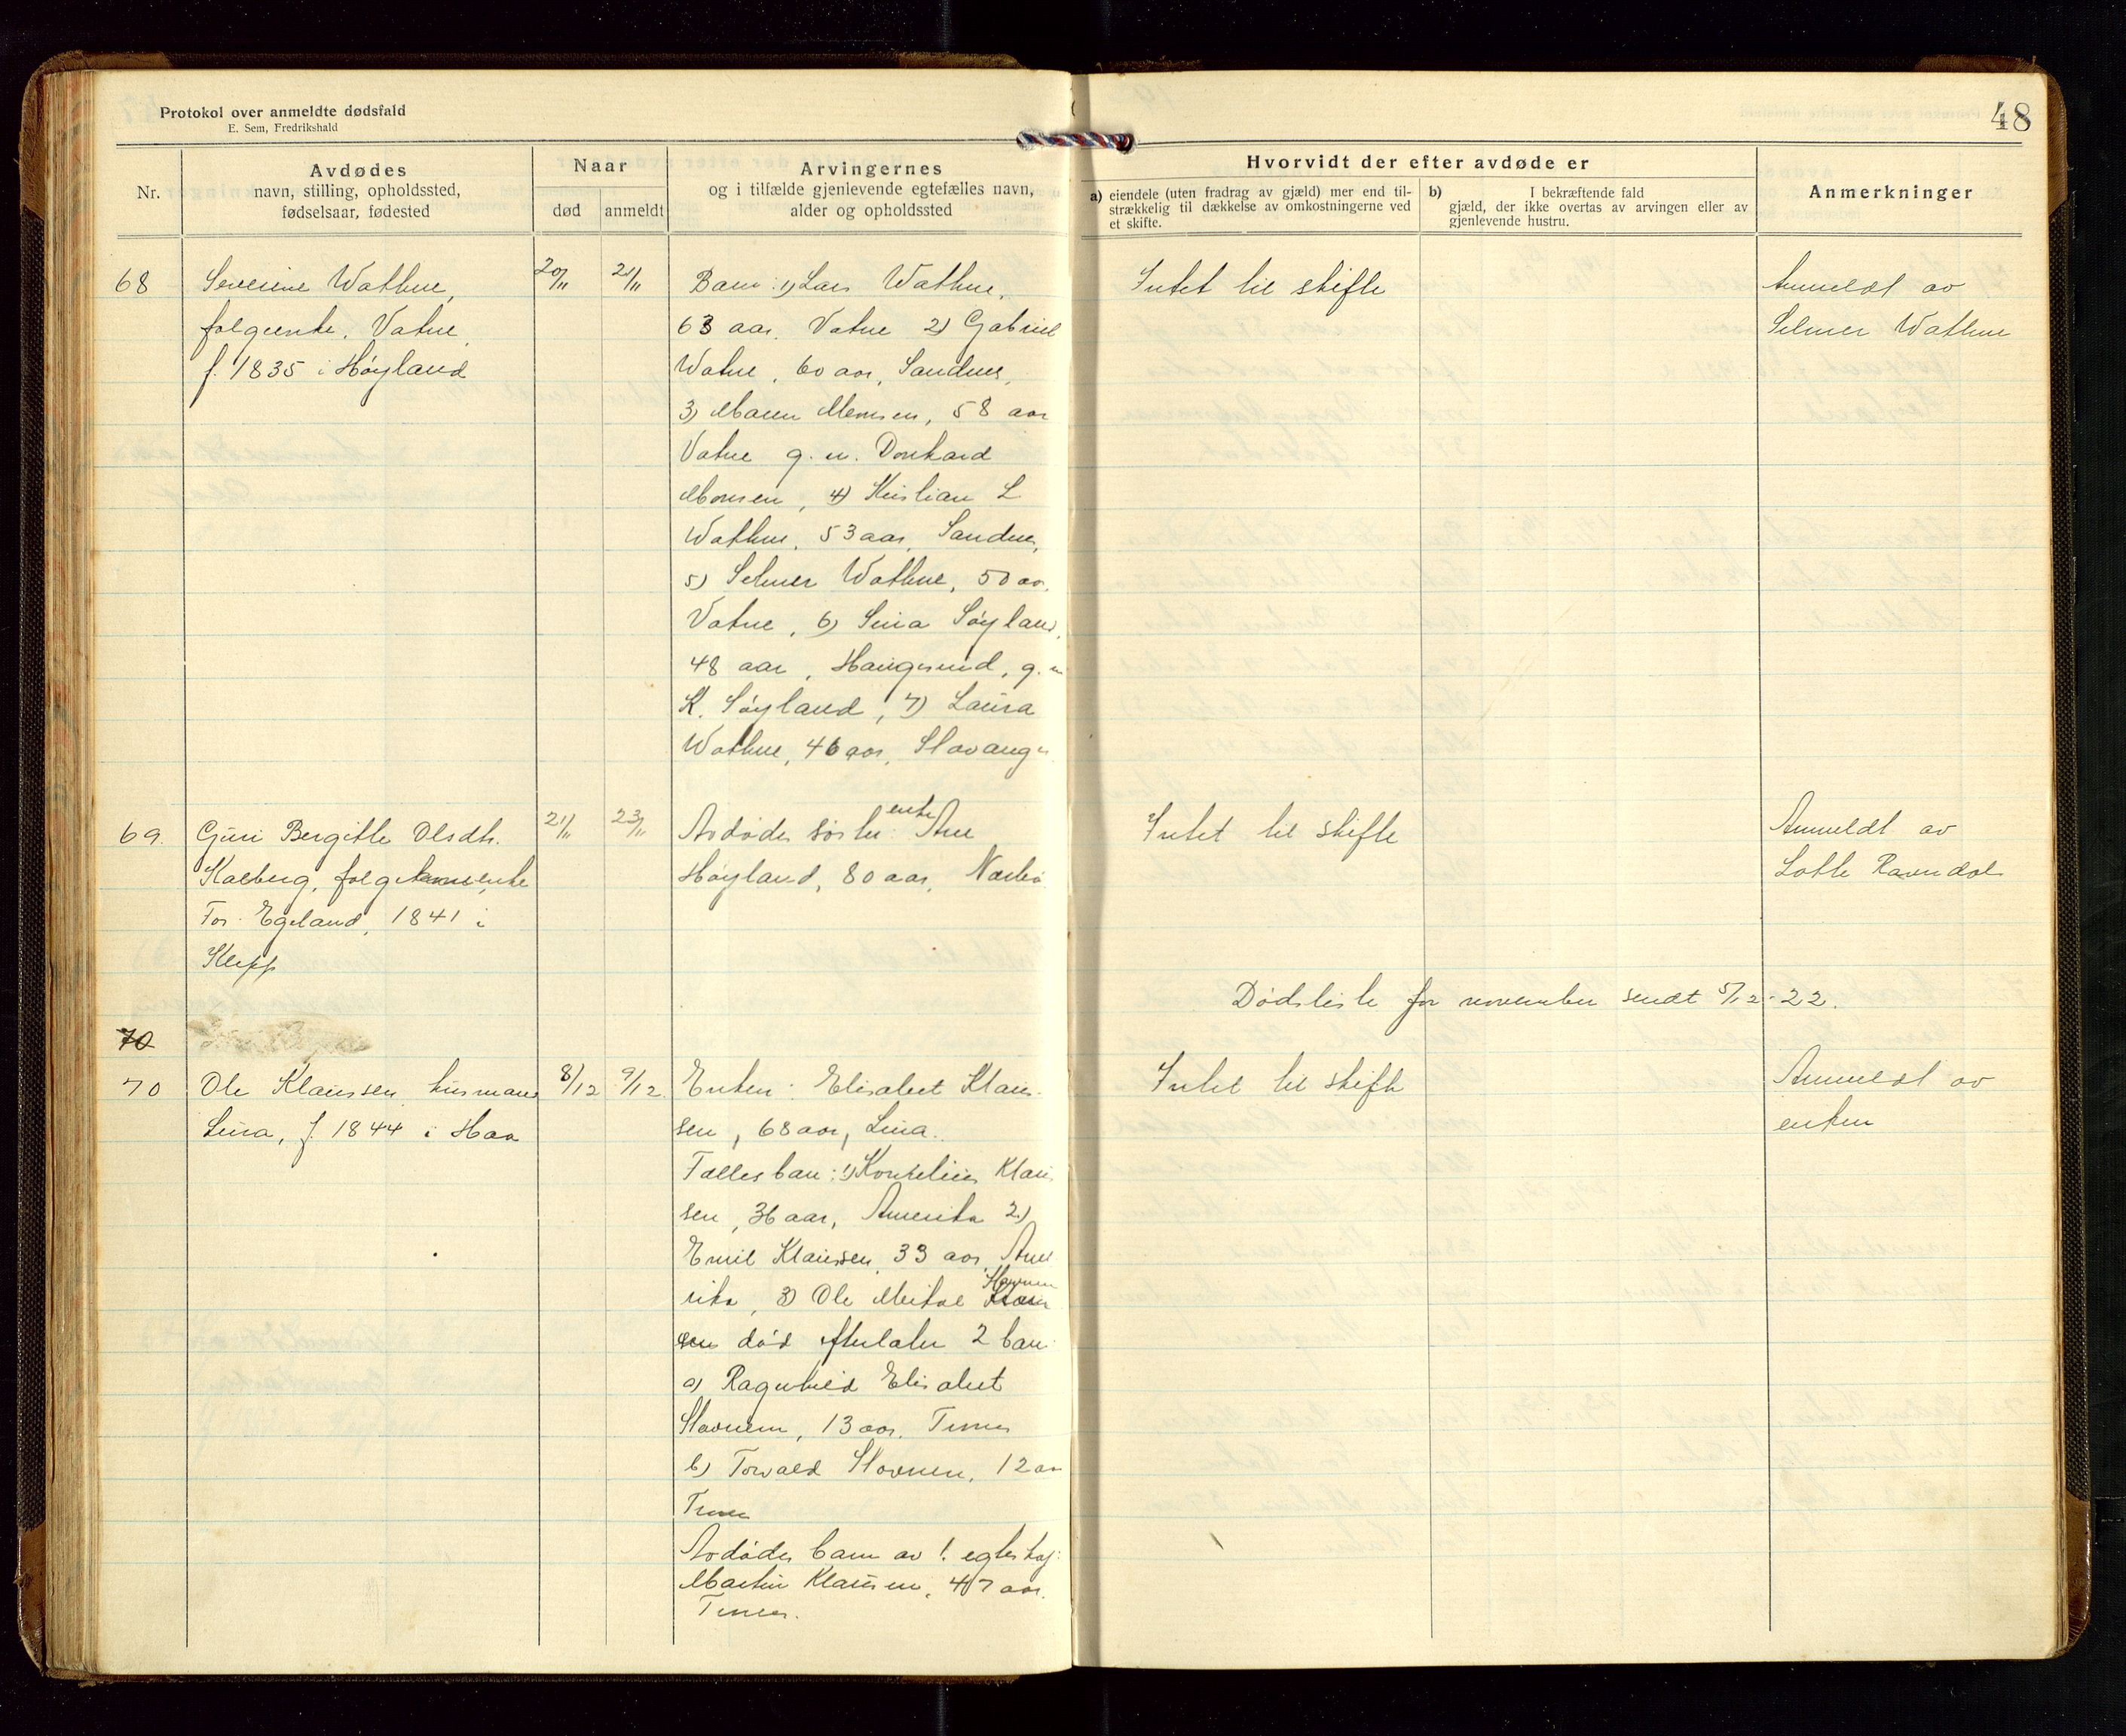 Protokol over anmeldte dødsfald
E. Sem, Fredrikshald
48
Nr.
Avdødes
navn, stilling, opholdssted,
fødselsaar, fødested
Naar
død
anmeldt
Arvingernes
og i tilfælde gjenlevende egtefælles navn,
alder og opholdssted
Hvorvidt der efter avdøde er
a) eiendele (uten fradrag av gjæld) mer end til-
strækkelig til dækkelse av omkostningerne ved
et skifte.
b) I bekræftende fald
gjæld, der ikke overtas av arvingen eller av
gjenlevende hustru.
Anmerkninger
68
Severine Wathne,
folgeenke, Vatne,
f. 1835 i Høyland
20/11
21/11
Barn: 1) Lars Wathne,
63 aar, Vatne 2) Gabriel
Watne, 60 aar, Sandnes,
3) Maren Monsen, 58 aar
Vatne g. m.
Monsen, 4) Kristian L
Wathne, 53 aar, Sandnes,
5) Selmer Wathne, 50 aar,
Vatne, 6) Sina Søyland,
48 aar, Haugesund, g. m
K. Søyland, 7) Laura
Wathne, 46 aar, Stavanger
Intet til skifte
Anmeldt av
Selmer Wathne
69.
Guri Bergitte Olsdtr.
Kalberg, folgekone enke
Tor. Egeland, 1841 i
Klepp
21/11
23/11
Avdødes søster: enke Ane
Høyland, 80 aar, Nærbø
Intet til skifte
Anmeldt av
Lotte Ravndal
Dødsliste for november sendt 5/12-22.
70
70
Ole Klaussen husmann
Lina, f. 1844 i Haa
8/12
9/12
Enken: Elisabet Klaus-
sen, 68 aar, Lina.
Fælles barn: 1) Kornelius Klaus
sen, 36 aar, Amerika 2)
Emil Klaussen, 33 aar, Ame
rika, 3) Ole Mikal Stavnem Klaus
sen død efterlater 2 barn:
a) Ragnhild Elisabet
Stavnem, 13 aar, Times
b) Torvald Stavnem, 12 aar
Times
Avdødes barn av 1. egteskap:
Martin Klausen, 47 aar,
Times.
Intet til skifte
Anmeldt av
enken